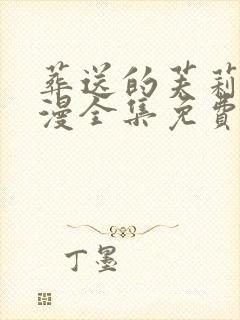 葬送的芙莉
漫全集免費
丁墨